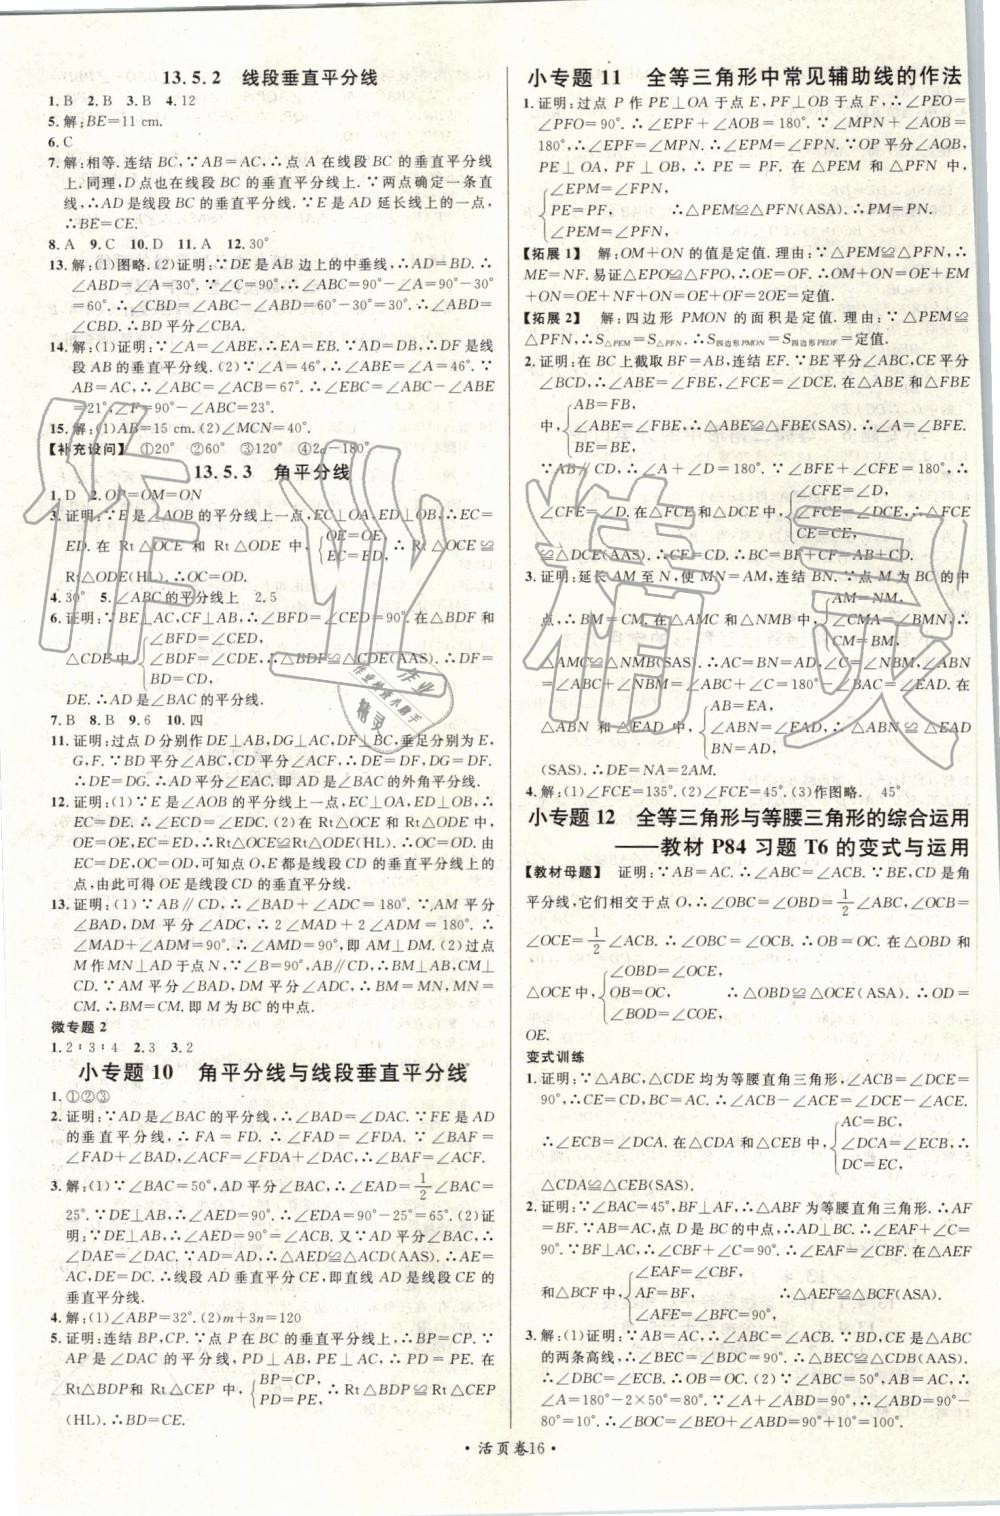 13.5.2 线段垂直平分线
1. B 2. B 3. B 4. 12
5. 解:BE=11 cm.
6. C
7. 解:相等. 连结 BC,∵AB=AC,∴点 A 在线段 BC 的垂直平分线
上. 同理,D 点也在线段 BC 的垂直平分线上. ∵两点确定一条直
线,∴AD 是线段 BC 的垂直平分线. ∵E 是 AD 延长线上的一点,
∴BE=CE.
8. A 9. C 10. D 11. A 12. 30°
13. 解:(1)图略. (2)证明:∵DE 是 AB 边上的中垂线,∴AD=BD. ∴
∠ABD=∠A=30°. ∵∠C=90°,∴∠ABC=90°-∠A=90°-30°
=60°. ∴∠CBD=∠ABC-∠ABD=60°-30°=30°. ∴∠ABD=
∠CBD. ∴BD 平分∠CBA.
14. 解:(1)证明:∵∠A=∠ABE,∴EA=EB. ∵AD=DB,∴DF 是线
段 AB 的垂直平分线. (2)∵∠A=46°,∴∠ABE=∠A=46°. ∵
AB=AC,∴∠ABC=∠ACB=67°. ∴∠EBC=∠ABC-∠ABE
=21°,∠F=90°-∠ABC=23°.
15. 解:(1)AB=15 cm. (2)∠MCN=40°.
【补充设问】 ①20° ②60° ③120° ④2α-180°
13.5.3 角平分线
1. D 2. OP=OM=ON
3. 证明:∵E 是∠AOB 的平分线上一点,EC⊥OA,ED⊥OB,∴EC=
ED. 在 Rt△OCE 和 Rt△ODE 中,{OE=OE, EC=ED, ∴Rt△OCE≌
Rt△ODE(HL). ∴OC=OD.
4. 30° 5. ∠ABC的平分线上 2.5
6. 证明:∵BE⊥AC,CF⊥AB,∴∠BFD=∠CED=90°. 在△BDF 和
△CDE 中,{∠BFD=∠CED, ∠BDF=∠CDE, BD=CD, ∴△BDF≌△CDE(AAS). ∴DF=
DE. ∴AD 是∠BAC 的平分线.
7. B 8. B 9. 6 10. 四
11. 证明:过点 D 分别作 DE⊥AB,DG⊥AC,DF⊥BC,垂足分别为 E,
G,F. ∵BD 平分∠ABC,CD 平分∠ACF,∴DE=DF,DG=DF.
∴DE=DG. ∴AD 平分∠EAC. 即 AD 是∠BAC 的外角平分线.
12. 证明:(1)∵E 是∠AOB 的平分线上一点,EC⊥OA,ED⊥OB,∴
EC=DE. ∴∠ECD=∠EDC. (2)在 Rt△OCE 和 Rt△ODE 中,
OE=OE,EC=ED,∴Rt△OCE≌Rt△ODE(HL). ∴OC=OD.
(3)∵OC=OD,EC=DE,因此可知点 O,E 都是线段 CD 的垂直平分线上的
点,由此可得 OE 是线段 CD 的垂直平分线.
13. 证明:(1)∵AB∥CD,∴∠BAD+∠ADC=180°. ∵AM 平分
∠BAD,DM 平分∠ADC,∴2∠MAD+2∠ADM=180°. ∴
∠MAD+∠ADM=90°. ∴∠AMD=90°,即 AM⊥DM. (2)过点
M 作 MN⊥AD 于点 N,∵∠B=90°,AB∥CD,∴BM⊥AB,CM⊥
CD. ∵AM 平分∠BAD,DM 平分∠ADC,∴BM=MN,MN=
CM. ∴BM=CM. 即 M 为 BC 的中点.
微专题 2
1. 2∶3∶4 2. 3 3. 2
小专题 10 角平分线与线段垂直平分线
1. ①②③
2. 证明:∵AD 是∠BAC 的平分线,∴∠BAD=∠DAC. ∵FE 是 AD
的垂直平分线,∴FA=FD. ∴∠FAD=∠FDA. ∵∠BAF=
∠FAD+∠BAD,∠ACF=∠FDA+∠DAC,∴∠BAF=∠ACF.
3. 解:(1)∵∠BAC=50°,AD 平分∠BAC,∴∠EAD=1/2∠BAC=
25°. ∵DE⊥AB,∴∠AED=90°. ∴∠EDA=90°-25°=65°. (2)证
明:∵DE⊥AB,∴∠AED=90°=∠ACB. 又∵AD 平分∠BAC,∴
∠DAE=∠DAC. ∵AD=AD,∴△AED≌△ACD(AAS). ∴AE=
AC,DE=DC. ∴线段 AD 垂直平分 CE,即直线 AD 是线段 CE 的
垂直平分线.
4. 解:(1)∠ABP=32°. (2)m+3n=120
5. 证明:连结 BP,CP. ∵点 P 在 BC 的垂直平分线上,∴BP=CP. ∵
AP 是∠DAC 的平分线,PD⊥AB,PE⊥AC,∴PD=PE. 在
Rt△BDP和 Rt△CEP 中,{BP=CP, PD=PE, ∴Rt△BDP≌Rt△CEP
(HL). ∴BD=CE.
小专题 11 全等三角形中常见辅助线的作法
1. 证明:过点 P 作 PE⊥OA 于点 E,PF⊥OB 于点 F,∴∠PEO=
∠PFO=90°. ∴∠EPF+∠AOB=180°. ∵∠MPN+∠AOB=
180°,∴∠EPF=∠MPN. ∴∠EPM=∠FPN. ∵OP平分∠AOB,
PE⊥OA,PF⊥OB,∴PE=PF. 在△PEM 和△PFN 中,
{∠EPM=∠FPN, PE=PF, ∠PEM=∠PFN, ∴△PEM≌△PFN(ASA). ∴PM=PN.
【拓展 1】 解:OM+ON 的值是定值. 理由:∵△PEM≌△PFN,∴
ME=NF. 易证△EPO≌△FPO. ∴OE=OF. ∴OM+ON=OE+EM
+ON=OE+NF+ON=OE+OF=2OE=定值.
【拓展 2】 解:四边形 PMON 的面积是定值. 理由:∵△PEM≌
△PFN,∴S△PEM=S△PFN,∴S四边形PMON=S四边形PEOF=定值.
2. 证明:在 BC 上截取 BF=AB,连结 EF. ∵BE 平分∠ABC,CE 平分
∠BCD,∴∠ABE=∠FBE,∠FCE=∠DCE. 在△ABE 和△FBE
中,{AB=FB, ∠ABE=∠FBE, BE=BE, ∴△ABE≌△FBE(SAS). ∴∠A=∠BFE.
∵AB∥CD,∴∠A+∠D=180°. ∵∠BFE+∠CFE=180°,∴
∠CFE=∠D. 在△FCE 和△DCE 中,{∠CFE=∠D, ∠FCE=∠DCE, CE=CE, ∴△FCE
≌△DCE(AAS). ∴CF=CD. ∴BC=BF+CF=AB+CD.
3. 证明:延长 AM 至 N,使 MN=AM,连结 BN. ∵点 M 为 BC 的中
点,∴BM=CM. 在△AMC 和△NMB 中,{AM=NM, CM=BM, ∴
△AMC≌△NMB(SAS). ∴AC=BN=AD,∠C=∠NBM,∠ABN
=∠ABC+∠NBM=∠ABC+∠C=180°-∠BAC=∠EAD. 在
△ABN 和△EAD 中,{AB=EA, ∠ABN=∠EAD, BN=AD, ∴△ABN≌△EAD
(SAS). ∴DE=NA=2AM.
4. 解:(1)∠FCE=135°. (2)∠FCE=45°. (3)作图略. 45°
小专题 12 全等三角形与等腰三角形的综合运用
——教材 P84 习题 T6 的变式与运用
【教材母题】 证明:∵AB=AC. ∴∠ABC=∠ACB. ∵BE,CD 是角
平分线,它们相交于点 O,∴∠OBC=∠OBD=1/2∠ABC,∠OCB
=∠OCE=1/2∠ACB. ∴∠OBC=∠OCB. ∴OB=OC. 在△OBD 和
△OCE 中,{∠OBD=∠OCE, OB=OC, ∠BOD=∠COE, ∴△OBD≌△OCE(ASA). ∴OD=
OE.
变式训练
1. 证明:∵△ABC,△CDE 均为等腰直角三角形,∠ACB=∠DCE=
90°,∴CE=CD,BC=AC. ∴∠ACB-∠ACE=∠DCE-∠ACE.
∴∠ECB=∠DCA. 在△CDA 和△CEB 中,{AC=BC, ∠DCA=∠ECB, DC=EC, ∴
△CDA≌△CEB(SAS).
2. 证明:∵∠BAC=45°,BF⊥AF,∴△ABF 为等腰直角三角形. ∴AF
=BF. ∵AB=AC,点 D 是 BC 的中点,∴AD⊥BC. ∴∠EAF+∠C=
90°. ∵BF⊥AC,∴∠CBF+∠C=90°. ∴∠EAF=∠CBF. 在△AEF
和△BCF 中,{∠EAF=∠CBF, AF=BF, ∠AFE=∠BFC=90°, ∴△AEF≌△BCF(ASA).
3. 解:(1)证明:∵AB=AC,∴∠ABC=∠ACB. ∵BD,CE 是△ABC
的两条高线,∴∠BEC=∠BDC=90°. ∴△BEC≌△CDB(AAS).
∴∠DBC=∠ECB. ∴OB=OC. (2)∵∠ABC=50°,AB=AC,∴
∠A=180°-2×50°=80°. ∵∠A+∠ABD=90°,∴∠ABD=90°-
80°=10°. ∴∠BOC=∠BEO+∠ABD=90°+10°=100°.
• 活页卷16 •
作业精灵